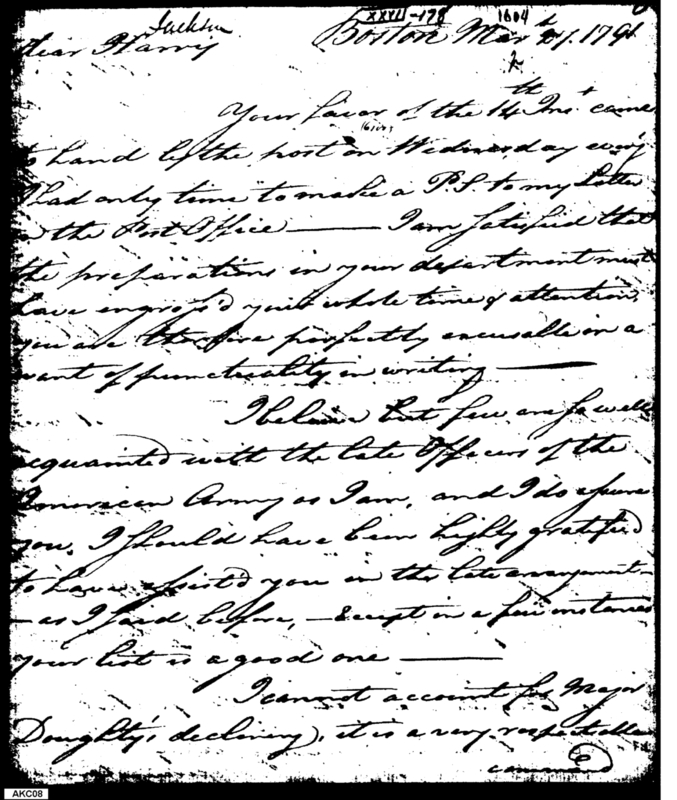 Jackson
XXXII-178
1604
Dear Harry Boston Mar 27. 1791
Your favor of the 14th Inst came
to hand by the post on Wednesday eveng
I had only time to make a P.S. to my Letter
in the Post Office — I am satisfied that
the preparations in your department must
have engross'd your whole time & attention
you are therefore perfectly excusable in a
want of punctuality in writing —
I believe but few are so well
acquainted with the late Officers of the
American Army as I am, and I do assure
you, I should have been highly gratified
to have assist'd you in the late arrangement—
—as I said before, —Except in a few instances
your list is a good one —
I cannot account for Major
Doughty's declining, it is a very respectable
command
AKC08